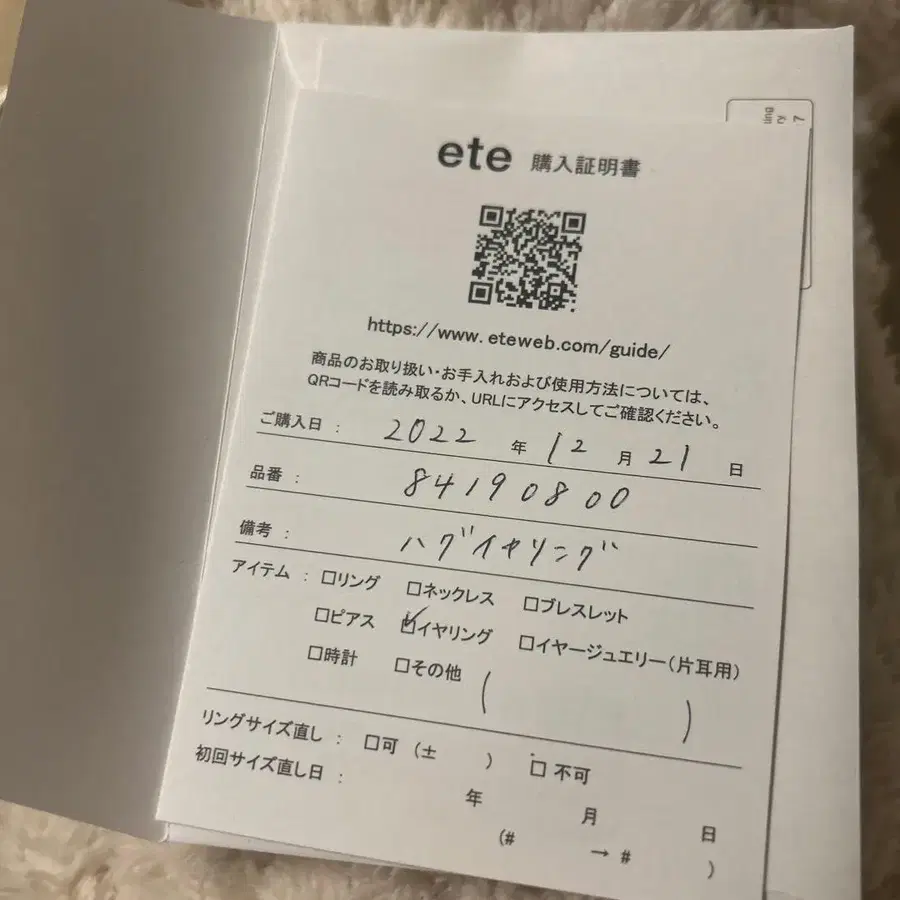 ete 購入証明書
https://www.eteweb.com/guide/
商品のお取り扱い・お手入れおよび使用方法については、
QRコードを読み取るか、URLにアクセスしてご確認ください。
ご購入日 : 2022 年 12 月 21 日
品番 : 84190800
備考 : ハグイヤリング
アイテム : □リング □ネックレス □ブレスレット
□ピアス ☑イヤリング □イヤージュエリー(片耳用)
□時計 □その他 ( )
リングサイズ直し : □可 (± ) □不可
初回サイズ直し日 : 年 月 日
(# → # )